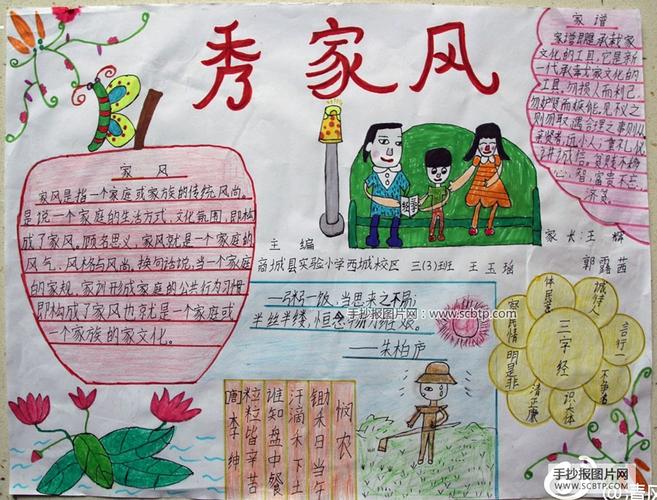 秀家风
家谱
家谱即是承载家
文化的工具,它是新
一代承载家文化的
工具,勿损人而利己,
家风
家风是指一个家庭或家族的传统风尚。
是说一个家庭的生活方式、文化氛围,即构
成了家风。顾名思义,家风就是一个家庭的
风气、风格与风尚。换句话说,当一个家庭
的家规、家训形成家庭的公共行为习惯
即构成了家风也就是一个家庭或
一个家族的家文化。
主编
商城县实验小学西城校区 三(3)班 王玉瑶
家长:王辉
郭露茜
一粥一饭,当思来之不易;
半丝半缕,恒念物力维艰。
——朱柏庐
手抄报图片网:www.scbtp.com
三字经
言行一
识大体
清正廉
明是非
悯农
锄禾日当午
汗滴禾下土
谁知盘中餐
粒粒皆辛苦
李绅
手抄报图片网
WWW.SCBTP.COM